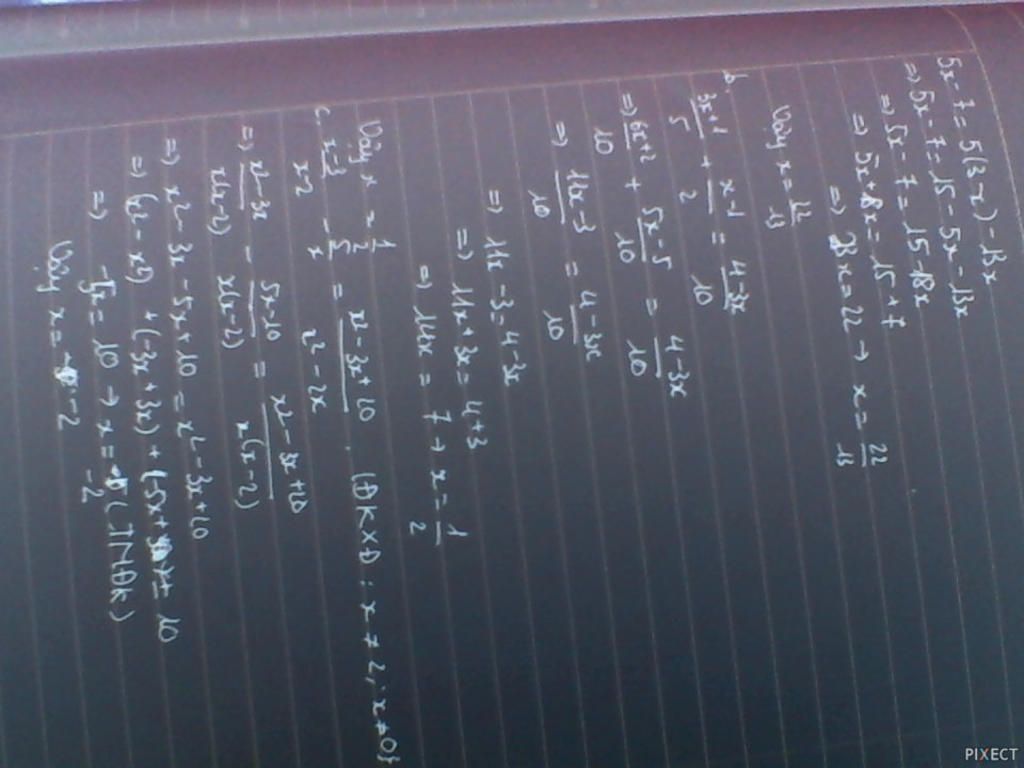 5x - 7 = 5(3 - x) - 13x
=> 5x - 7 = 15 - 5x - 13x
=> 5x - 7 = 15 - 18x
=> 5x + 8x = 15 + 7
=> 13x = 22 → x = 22/13
Vậy x = 22/13
b. (3x+1)/5 + (x-1)/2 = (4-3x)/10
=> (6x+2)/10 + (5x-5)/10 = (4-3x)/10
=> (11x-3)/10 = (4-3x)/10
=> 11x - 3 = 4 - 3x
=> 11x + 3x = 4 + 3
=> 14x = 7 → x = 1/2
Vậy x = 1/2
c. (x-3)/(x-2) - 5/x = (x² - 3x + 20)/(x² - 2x). (ĐKXĐ: x ≠ 2; x ≠ 0)
=> (x² - 3x)/(x(x-2)) - (5x-10)/(x(x-2)) = (x² - 3x + 20)/(x(x-2))
=> x² - 3x - 5x + 10 = x² - 3x + 20
=> (x² - x²) + (-3x + 3x) + (-5x = 10
=> -5x = 10 → x = -2 (TMĐK)
Vậy x = -2
PIXECT